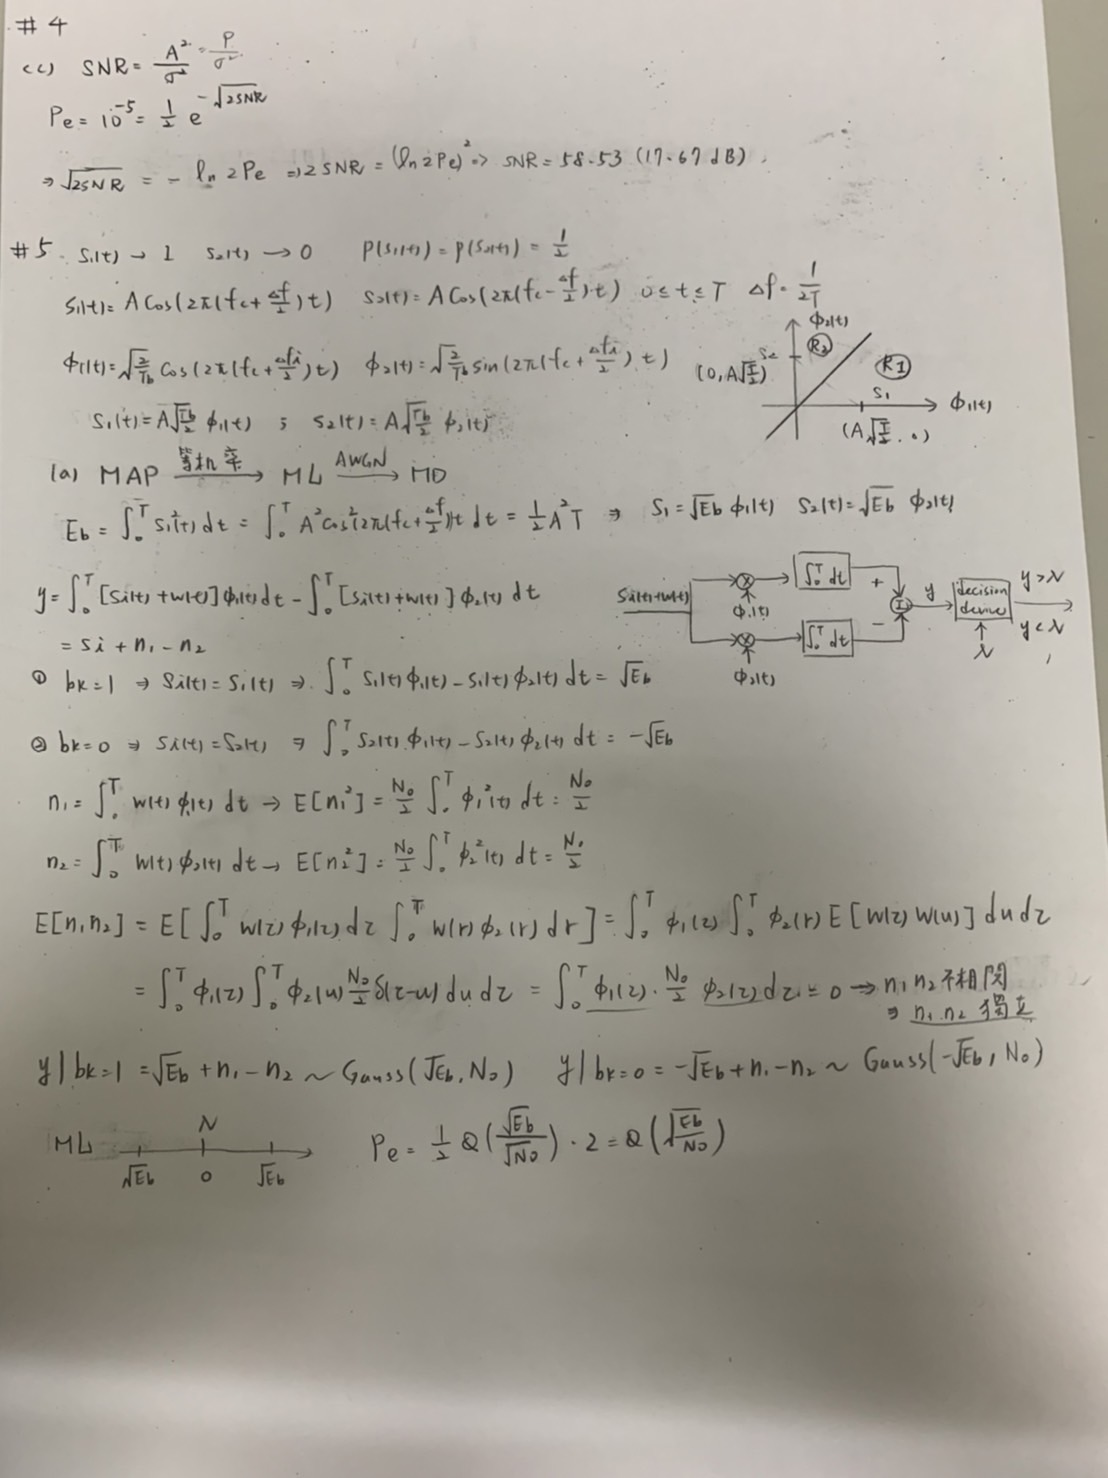 #4
(c) SNR = A²/σ² = P/σ²
Pe = 10⁻⁵ = 1/2 e^(-√2SNR)
⇒ √2SNR = - ln 2Pe ⇒ 2SNR = (ln 2Pe)² ⇒ SNR = 58.53 (17.67 dB).
#5. S₁(t) → 1 S₂(t) → 0 P(S₁(t)) = P(S₂(t)) = 1/2
S₁(t) = A Cos(2π(fc + Δf/2)t) S₂(t) = A Cos(2π(fc - Δf/2)t) 0 ≤ t ≤ T Δf = 1/2T
ϕ₁(t) = √(2/Tb) Cos(2π(fc + Δfi/2)t) ϕ₂(t) = √(2/Tb) sin(2π(fc + Δfi/2)t)
S₁(t) = A√(Tb/2) ϕ₁(t) ; S₂(t) = A√(Tb/2) ϕ₂(t)
ϕ₂(t)
S₂ R2
(0, A√(T/2)) R1
S₁ ϕ₁(t)
(A√(T/2), 0)
(a) MAP 等机率→ ML AWGN→ MD
Eb = ∫₀ᵀ S₁²(t) dt = ∫₀ᵀ A²Cos²(2π(fc + Δf/2)t dt = 1/2 A²T ⇒ S₁ = √Eb ϕ₁(t) S₂(t) = √Eb ϕ₂(t)
y = ∫₀ᵀ [Si(t) + w(t)] ϕ₁(t) dt - ∫₀ᵀ [Si(t) + w(t)] ϕ₂(t) dt
= Si + n₁ - n₂
Si(t)+w(t) ⊗ ϕ₁(t) ∫₀ᵀ dt + Σ y decision device y > λ
⊗ ϕ₂(t) ∫₀ᵀ dt − λ y < λ
① bk=1 ⇒ Si(t) = S₁(t) ⇒ ∫₀ᵀ S₁(t) ϕ₁(t) - S₁(t) ϕ₂(t) dt = √Eb
② bk=0 ⇒ Si(t) = S₂(t) ⇒ ∫₀ᵀ S₂(t) ϕ₁(t) - S₂(t) ϕ₂(t) dt = -√Eb
n₁ = ∫₀ᵀ w(t) ϕ₁(t) dt → E[n₁²] = N₀/2 ∫₀ᵀ ϕ₁²(t) dt = N₀/2
n₂ = ∫₀ᵀ w(t) ϕ₂(t) dt → E[n₂²] = N₀/2 ∫₀ᵀ ϕ₂²(t) dt = N₀/2
E[n₁n₂] = E[∫₀ᵀ w(z) ϕ₁(z) dz ∫₀ᵀ w(r) ϕ₂(r) dr] = ∫₀ᵀ ϕ₁(z) ∫₀ᵀ ϕ₂(r) E[w(z) w(u)] du dz
= ∫₀ᵀ ϕ₁(z) ∫₀ᵀ ϕ₂(u) N₀/2 δ(z-u) du dz = ∫₀ᵀ ϕ₁(z) · N₀/2 ϕ₂(z) dz = 0 → n₁ n₂ 不相関
⇒ n₁ n₂ 獨立
y | bk=1 = √Eb + n₁ - n₂ ~ Gauss(√Eb, N₀) y | bk=0 = -√Eb + n₁ - n₂ ~ Gauss(-√Eb, N₀)
ML λ Pe = 1/2 Q(√Eb/√N₀) · 2 = Q(√(Eb/N₀))
√Eb 0 √Eb